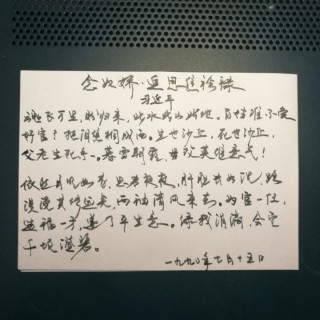 念奴娇·追思焦裕禄
习近平
魂飞万里，盼归来，此水此山此地。百姓谁不爱
好官？把泪焦桐成雨。生也沙丘，死也沙丘，
父老生死系。暮雪朝霜，毋改英雄意气！
依然月明如昔，思君夜夜，肝胆长如洗，路
漫漫其修远矣，两袖清风来去。为官一任，
造福一方，遂了平生意。绿我涓滴，会它
千顷澄碧。
一九九〇年七月十五日